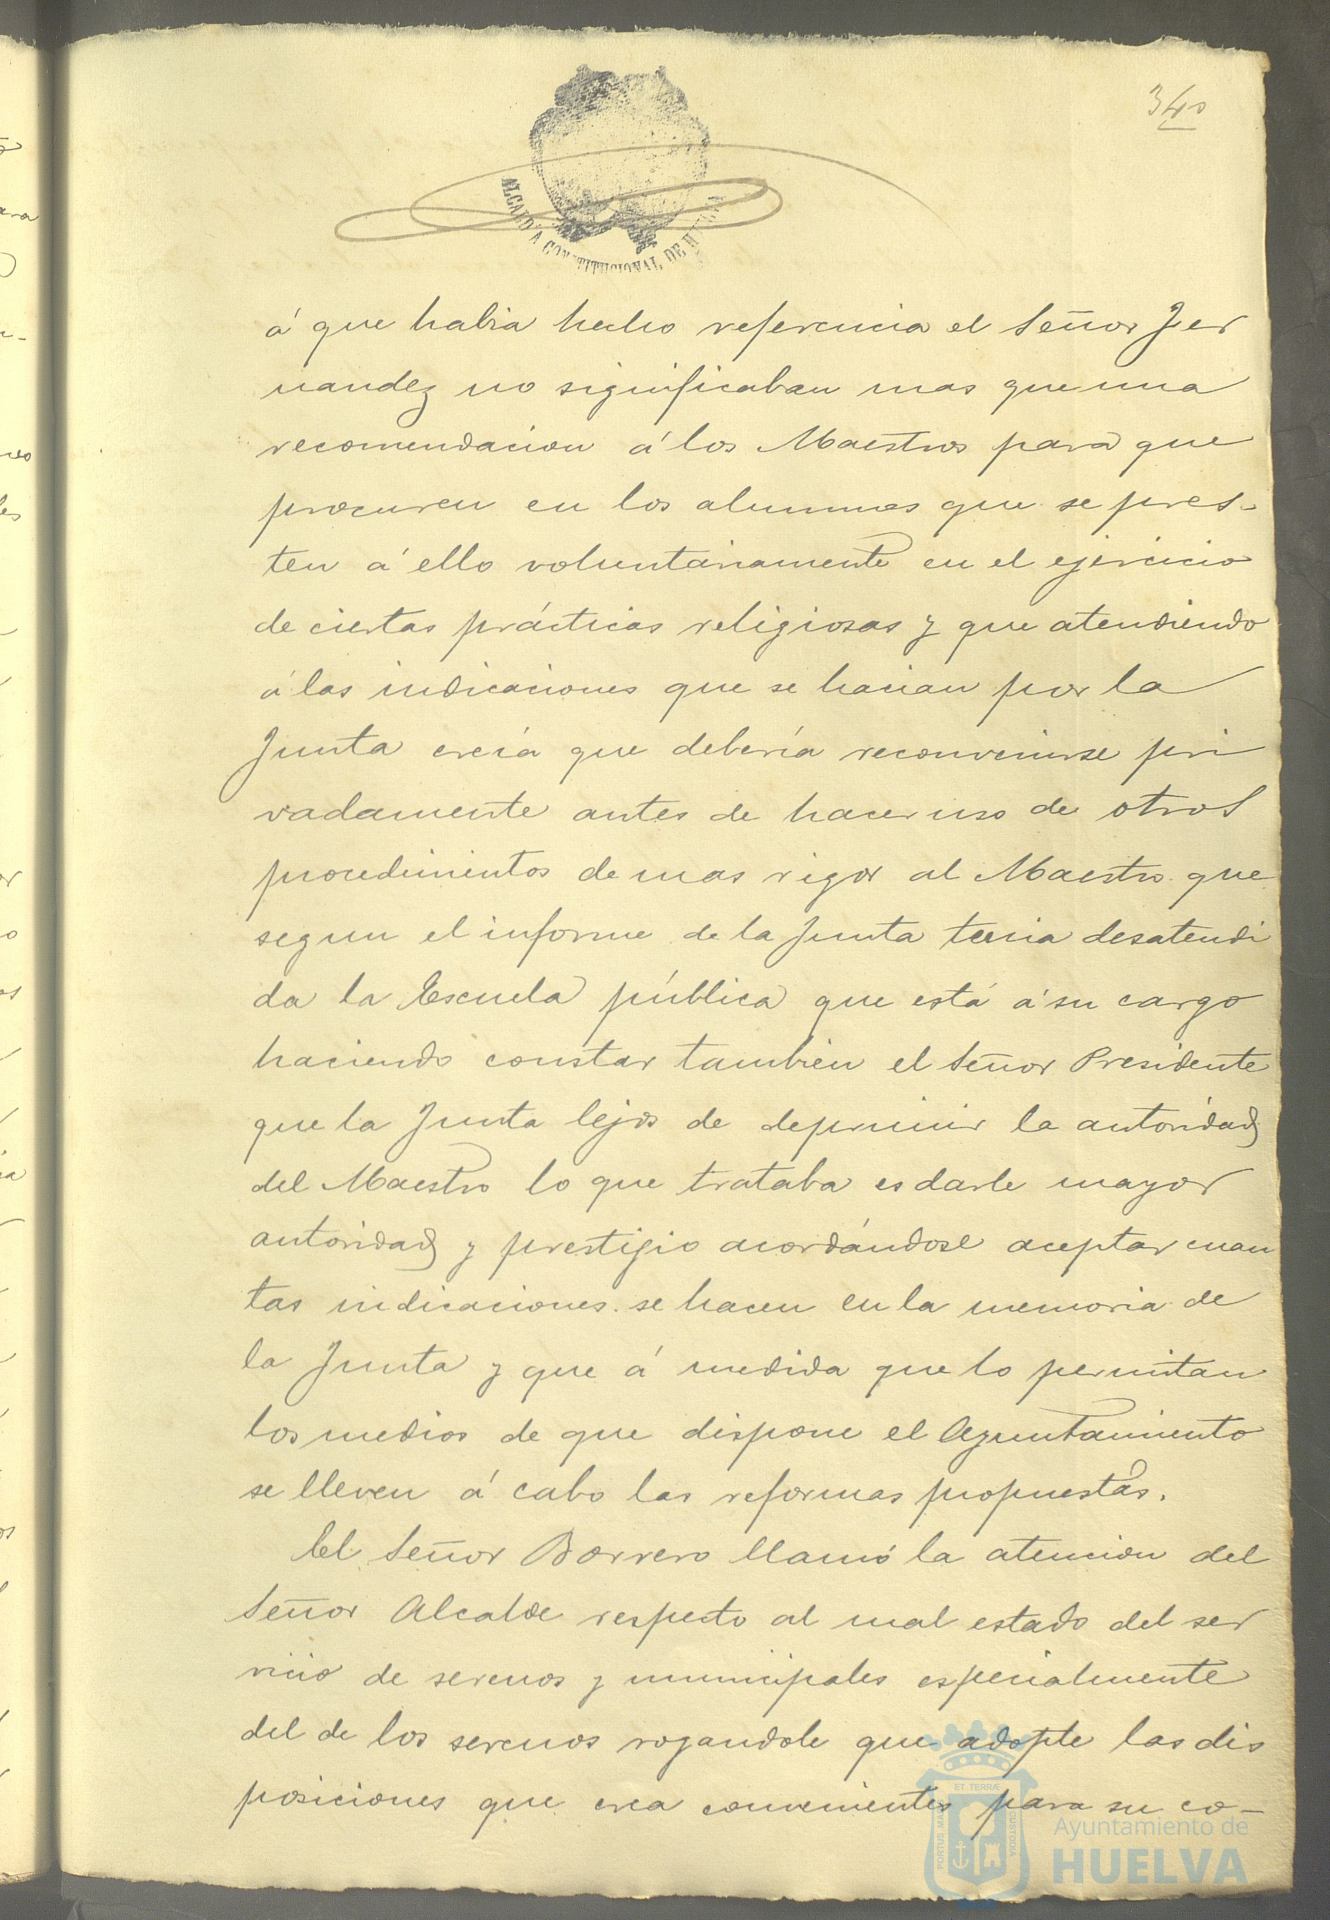 340
ALCALDÍA CONSTITUCIONAL DE HUELVA
á que habia hecho referencia el Señor Fer
nandez no significaban mas que una
recomendacion á los Maestros para que
procuren en los alumnos que se pres-
ten á ello voluntariamente en el ejercicio
de ciertas prácticas religiosas y que atendiendo
á las indicaciones que se hacian por la
Junta creia que debería reconvenirse pri
vadamente antes de hacer uso de otros
procedimientos de mas rigor al Maestro que
segun el informe de la Junta tenia desatendi
da la Escuela pública que está á su cargo
haciendo constar tambien el Señor Presidente
que la Junta lejos de deprimir la autoridad
del Maestro lo que trataba es darle mayor
autoridad y prestigio acordándose aceptar cuan
tas indicaciones se hacen en la memoria de
la Junta y que á medida que lo permitan
los medios de que dispone el Ayuntamiento
se lleven á cabo las reformas propuestas.
El Señor Borrero llamó la atencion del
Señor Alcalde respecto al mal estado del ser
vicio de serenos y municipales especialmente
del de los serenos rogandole que adopte las dis
posiciones que crea convenientes para su co-
ET TERRÆ
PORTUS MARIS
CUSTODIA
Ayuntamiento de
HUELVA